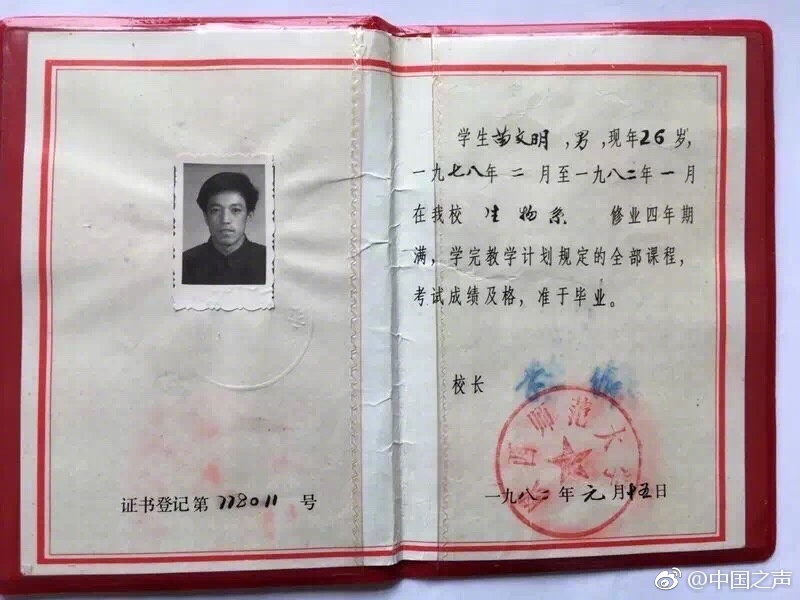 证书登记第 778011 号
学生苗文明，男，现年26岁，
一九七八年二月至一九八二年一月
在我校 生物系 修业四年期
满，学完教学计划规定的全部课程，
考试成绩及格，准于毕业。
校长
师范大学
一九八二年元月十五日
@中国之声